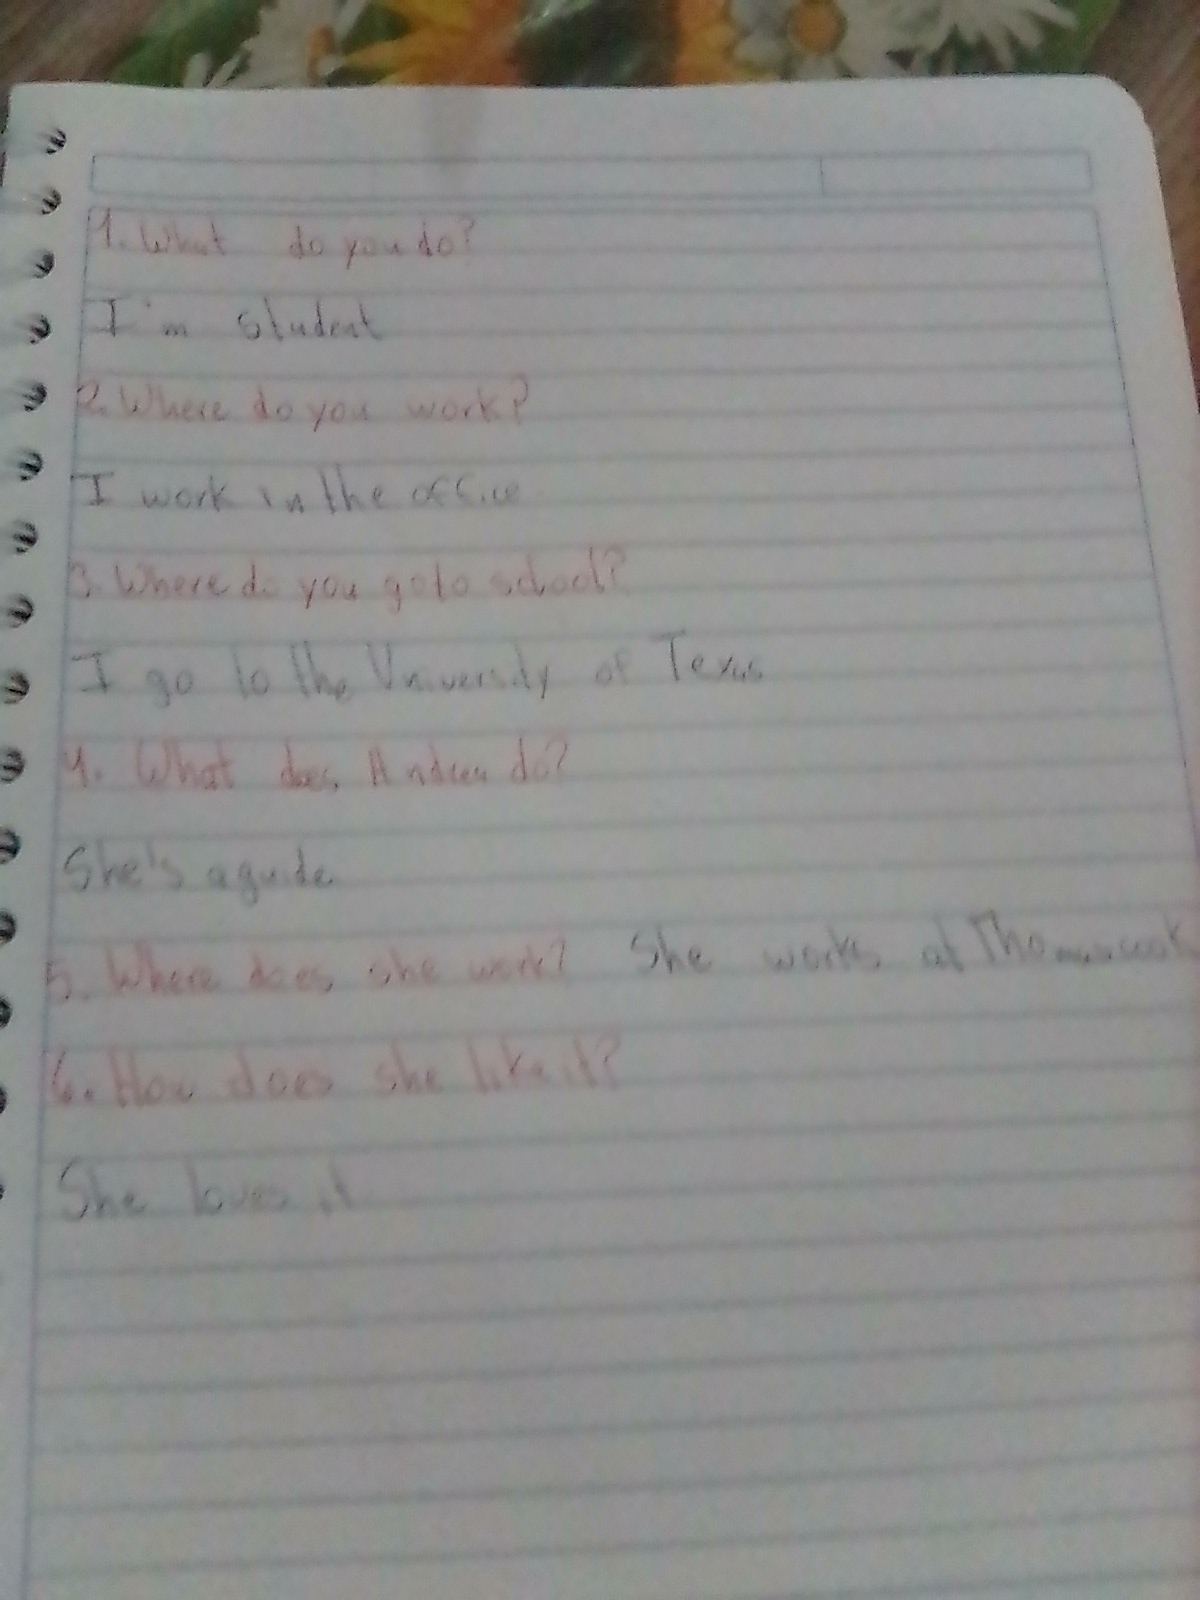 1. What do you do?
I'm student
2. Where do you work?
I work in the office
3. Where do you go to school?
I go to the University of Texas
4. What does Andrea do?
She's a guide
5. Where does she work? She works at Thomas cook
6. How does she like it?
She loves it